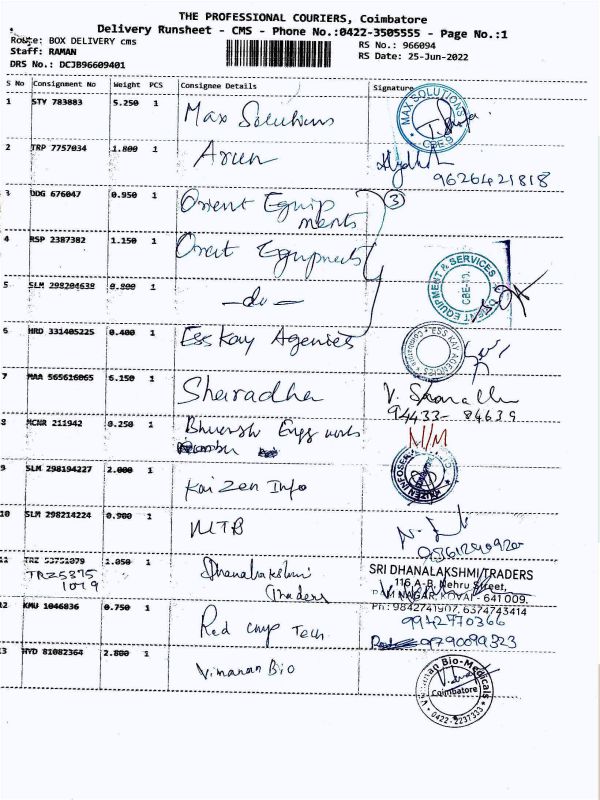 THE PROFESSIONAL COURIERS, Coimbatore
Delivery Runsheet - CMS - Phone No.:0422-3505555 - Page No.:1
Route: BOX DELIVERY cms
Staff: RAMAN
DRS No.: DCJB96609401
RS No.: 966094
RS Date: 25-Jun-2022
S No Consignment No Weight PCS Consignee Details Signature
1 STY 783883 5.250 1 Max Solutions
MAX SOLUTIONS
CBE 9
2 TRP 7757034 1.800 1 Arun
9626421818
3 DDG 676047 0.950 1 Orient Equip
ments
3
4 RSP 2387382 1.150 1 Orient Equipments
5 SLM 298204638 0.800 1 - do -
EQUIPMENT & SERVICES
CBE-10.
6 HRD 331405225 0.400 1 Ess Kay Agencies
ESS KAY AGENCIES
7 MAA 565616065 6.150 1 Sharadha
V. Sharadha
94433-84639
8 MCNR 211942 0.250 1 Engg works
N/M
9 SLM 298194227 2.000 1 Kaizen Info
KAIZEN INFOSERV
10 SLM 298214224 0.900 1 MTB
11 TRZ 53751079 1.050 1 Dhanalakshmi
Traders
TRZ5375
1079
SRI DHANALAKSHMI TRADERS
116 A-B, Nehru Street,
RAM NAGAR, KOVAI - 641 009.
PH: 9842741907, 6374743414
12 KMU 1046836 0.750 1 Red chip Tech
9942770366
9790099323
13 HYD 81082364 2.800 1 Vimanan Bio
Vimanan Bio-Medicals
Coimbatore
0422-2237333